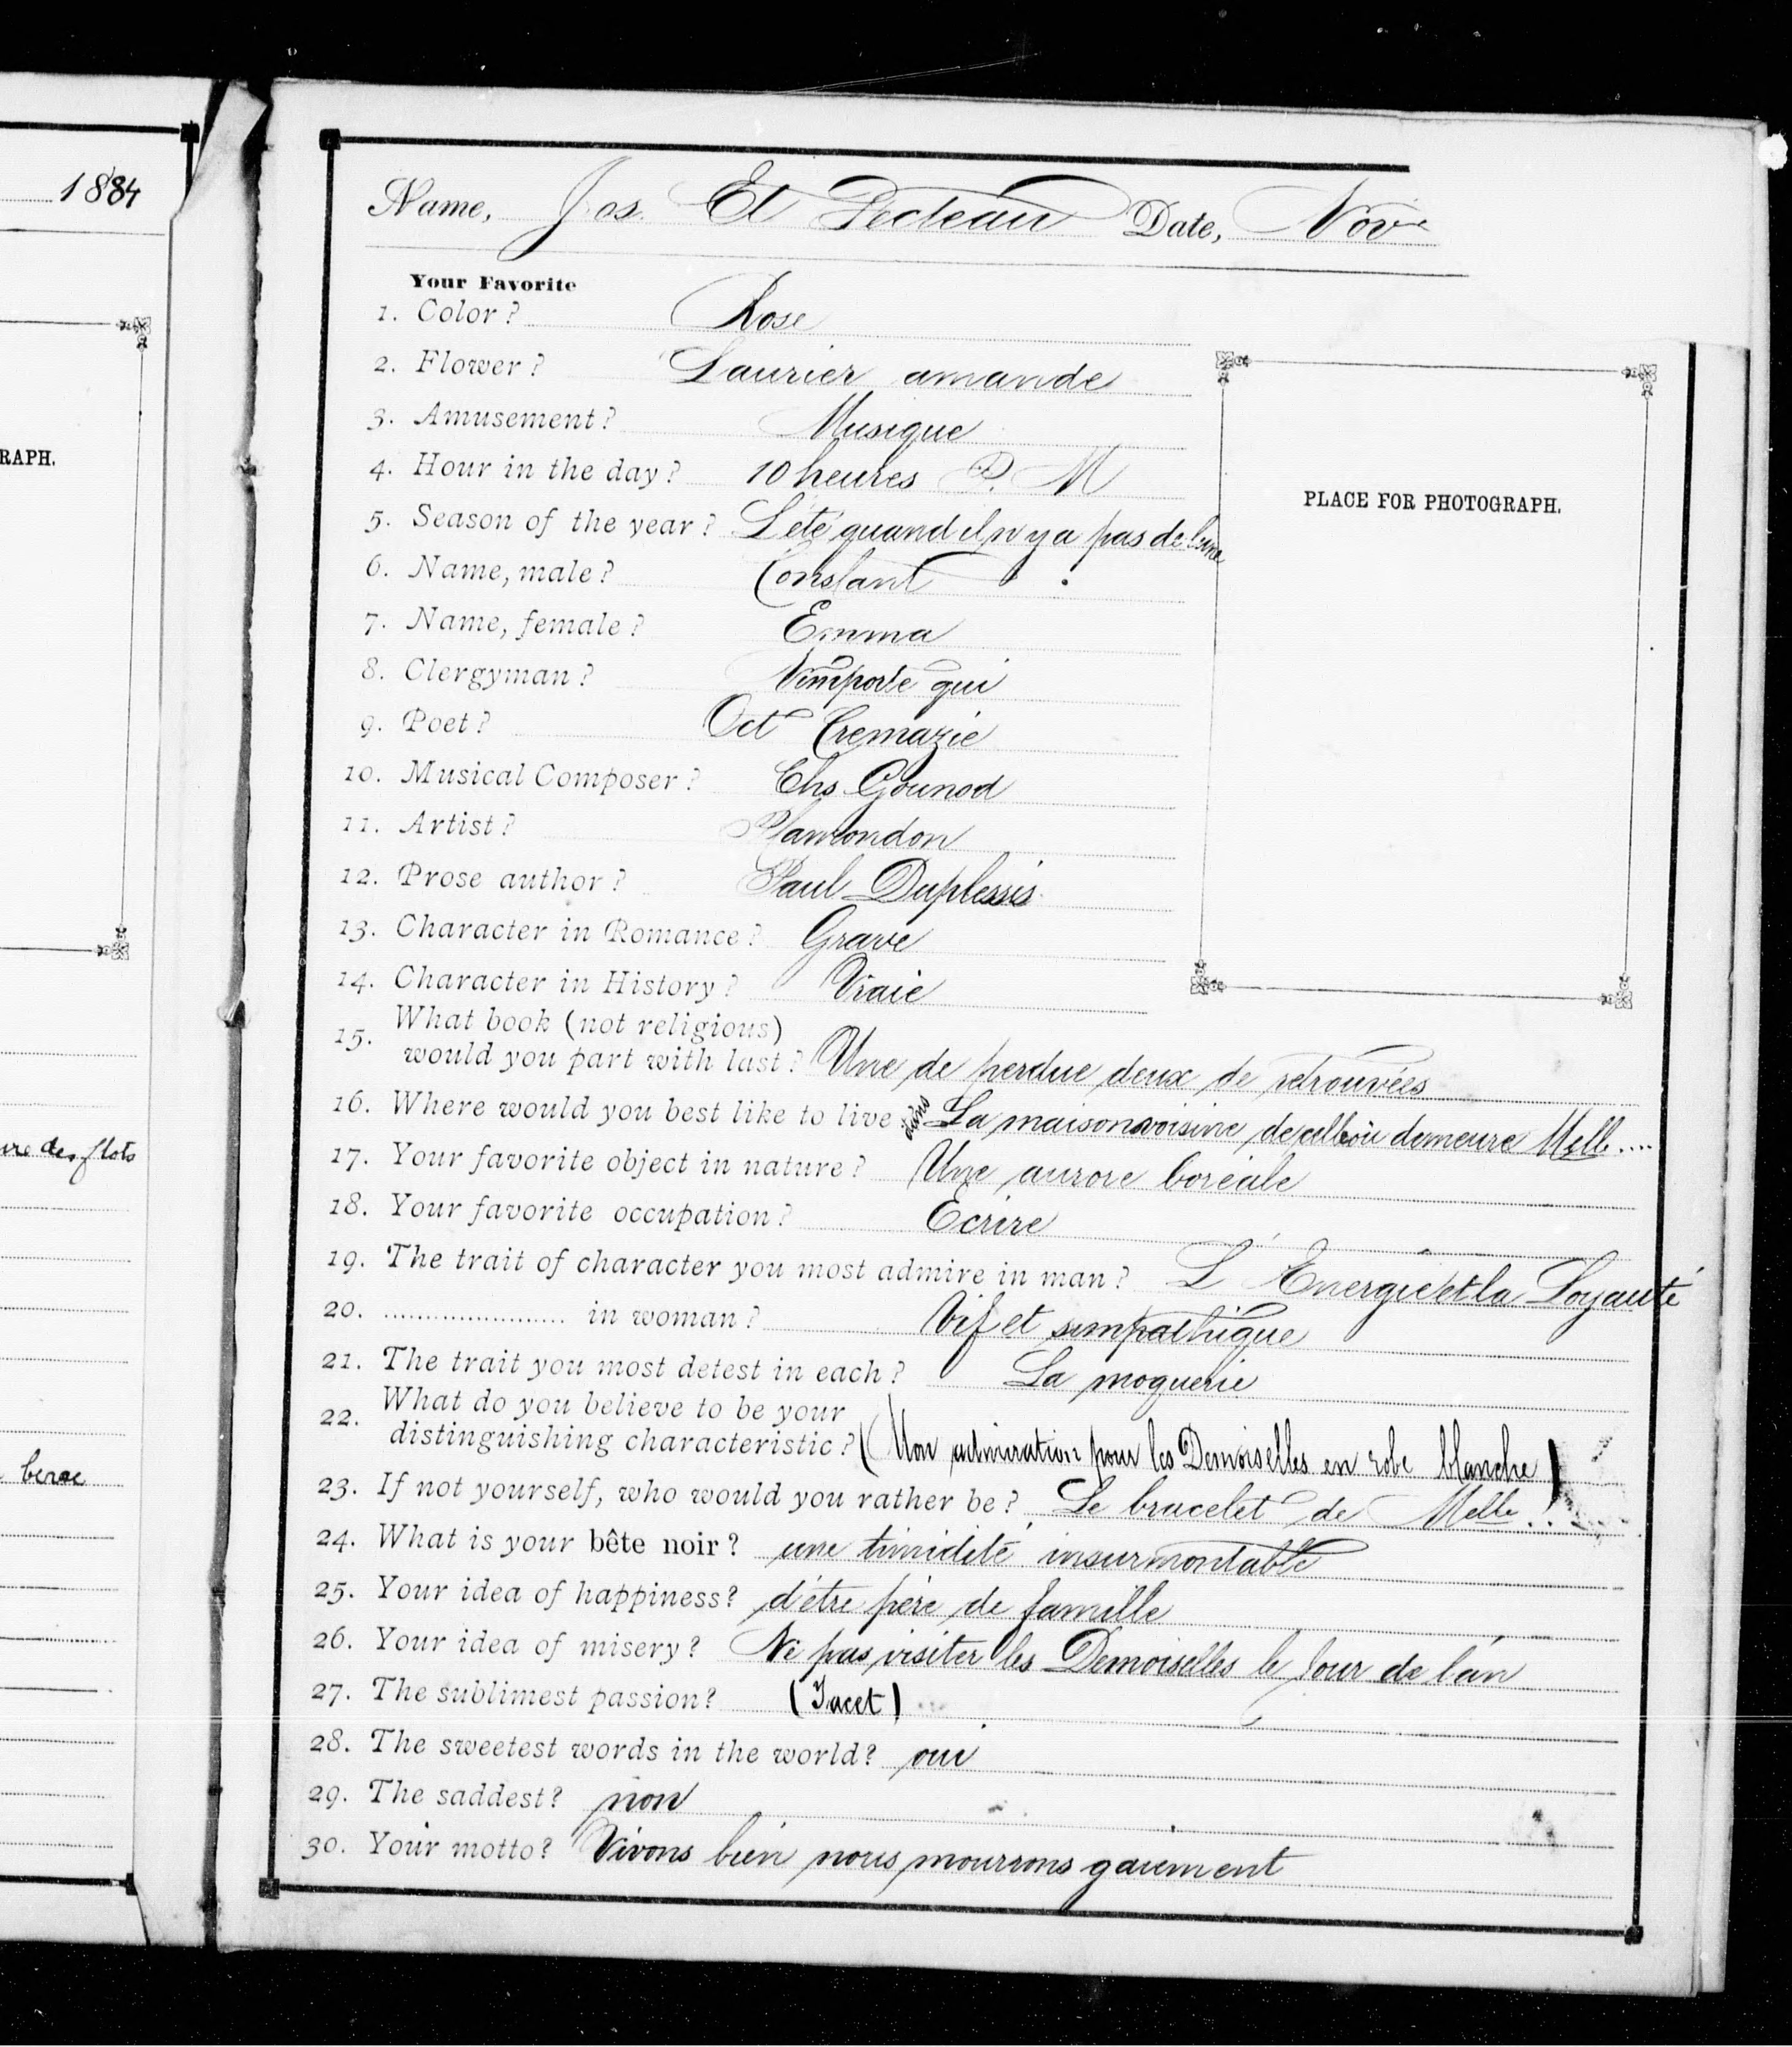 1884
RAPH.
re des flots
berce
Name, Jos. Et Fecteau Date, Nov
Your Favorite
1. Color? Rose
2. Flower? Laurier amande
3. Amusement? Musique
4. Hour in the day? 10 heures P. M
5. Season of the year? L'été quand il n'y a pas de lune
6. Name, male? Constant
7. Name, female? Emma
8. Clergyman? N'importe qui
9. Poet? Oct Cremazie
10. Musical Composer? Chs Gounod
11. Artist? Plamondon
12. Prose author? Paul Duplessis
13. Character in Romance? Grave
14. Character in History? Vraie
15. What book (not religious)
would you part with last? Une de perdue deux de retrouvées
16. Where would you best like to live dans La maison voisine de celle où demeure Melle....
17. Your favorite object in nature? Une aurore boréale
18. Your favorite occupation? Ecrire
19. The trait of character you most admire in man? L'Energie et la Loyauté
20. ...................... in woman? Vif et simpathique
21. The trait you most detest in each? La moquerie
22. What do you believe to be your
distinguishing characteristic? (Mon admiration pour les Demoiselles en robe blanche)
23. If not yourself, who would you rather be? Le bracelet de Melle..!
24. What is your bête noir? une timidité insurmontable
25. Your idea of happiness? d'être père de famille
26. Your idea of misery? Ne pas visiter les Demoiselles le Jour de l'an
27. The sublimest passion? (Tacet)
28. The sweetest words in the world? oui
29. The saddest? non
30. Your motto? Vivons bien nous mourrons gaiement
PLACE FOR PHOTOGRAPH.